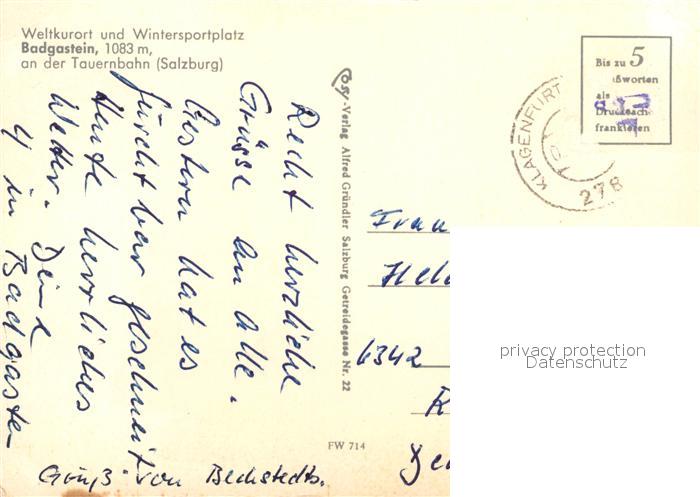 Weltkurort und Wintersportplatz
Badgastein, 1083 m,
an der Tauernbahn (Salzburg)
Recht herzliche
Grüsse an Alle.
Gestern hat es
furchtbar geschneit
Heute herrliches
Wetter. Deine
4 in Badgastein
Gruß von Bechstedts.
Cosy-Verlag Alfred Gründler Salzburg Getreidegasse Nr. 22
FW 714
Bis zu 5
als
Drucksache
frankieren
KLAGENFURT
278
Frau
6342
privacy protection
Datenschutz